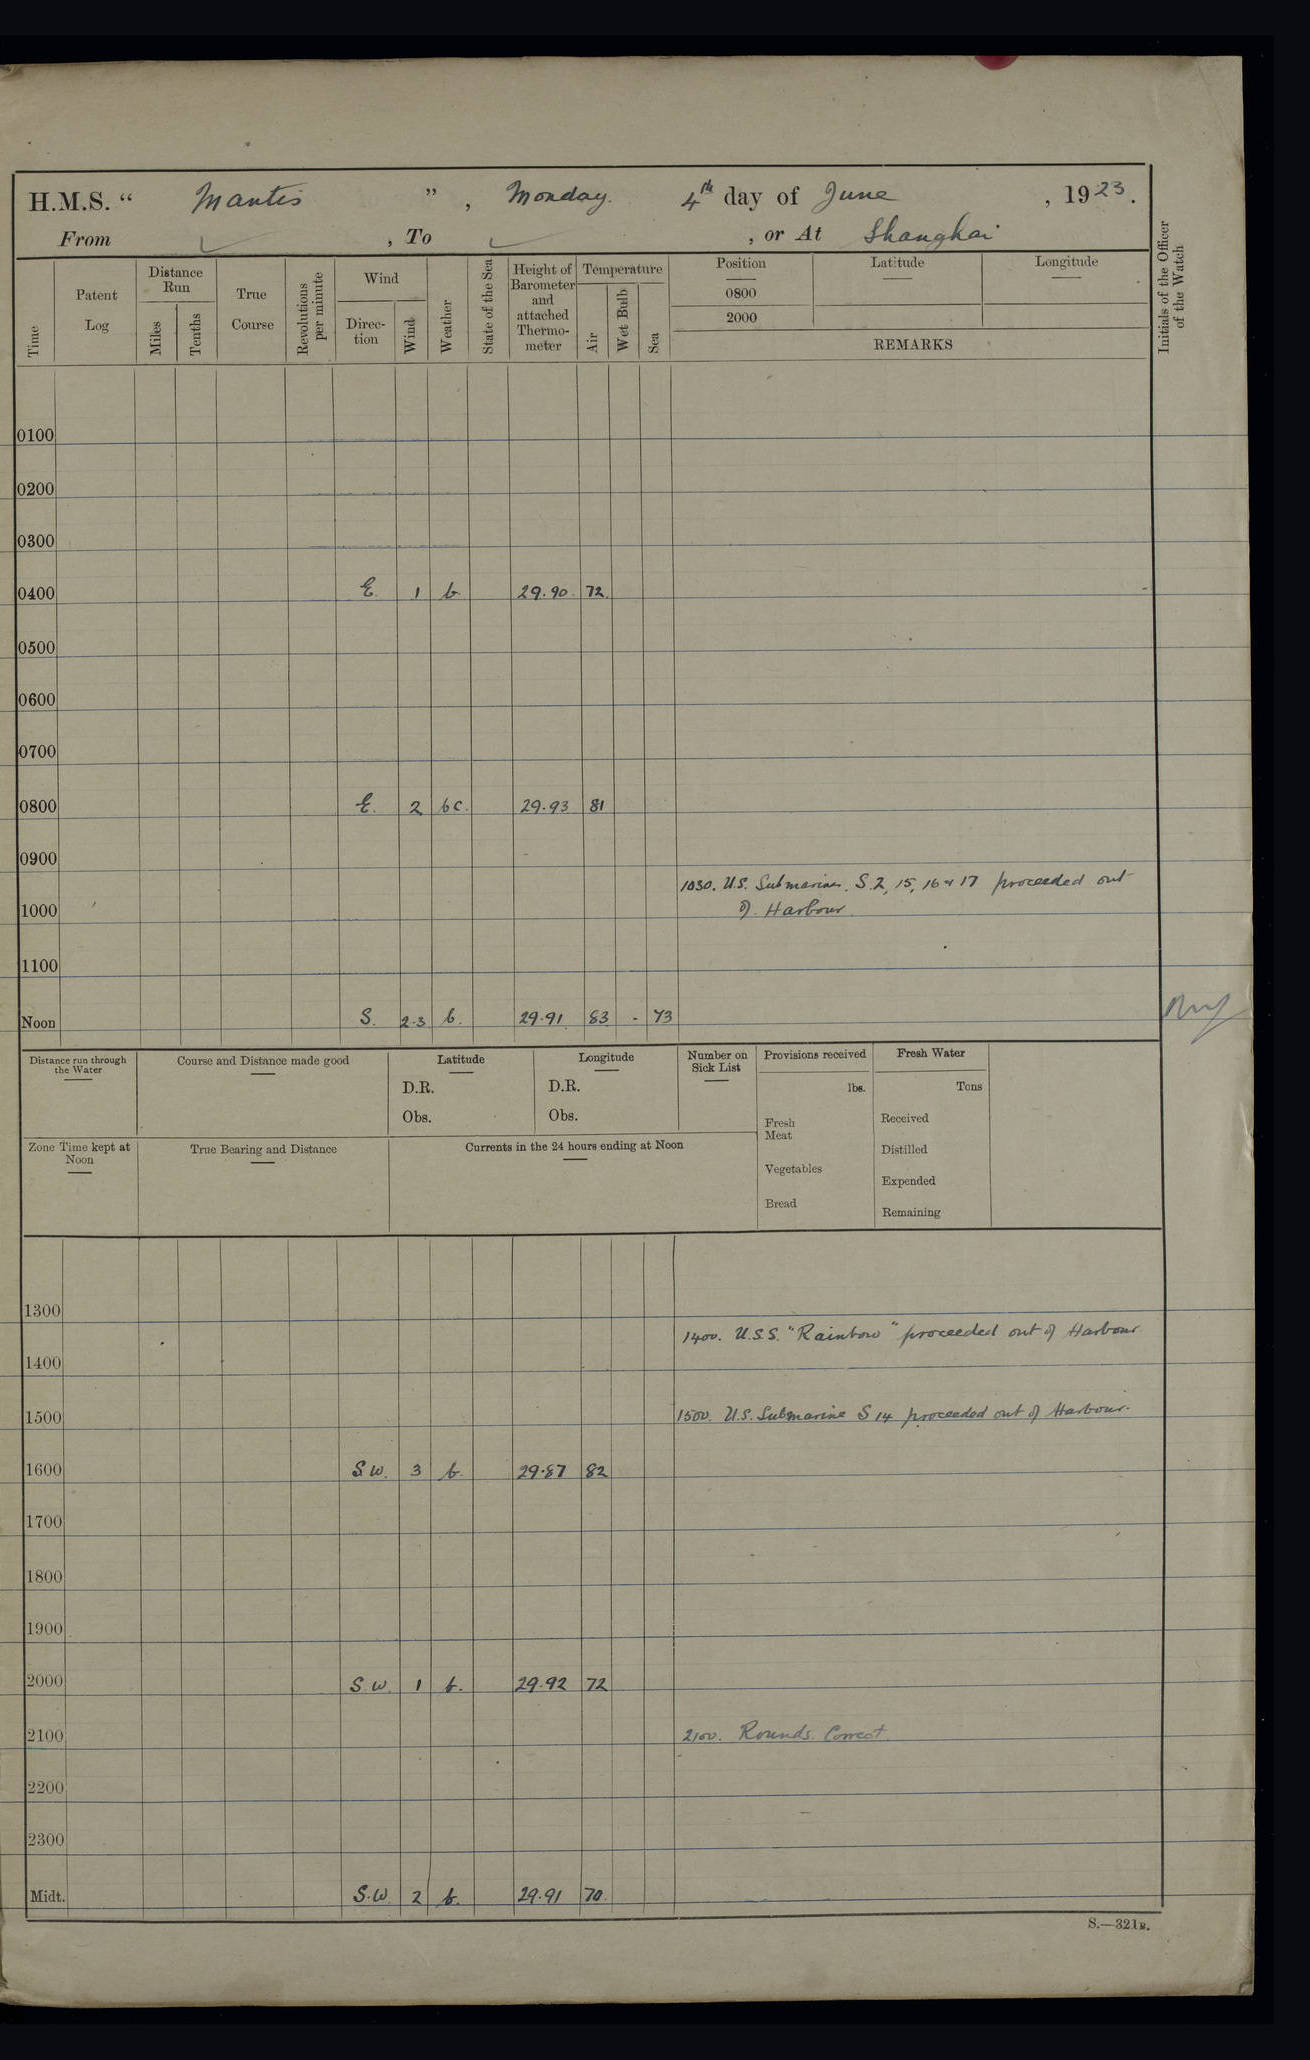 H.M.S. “ Mantis ”, Monday. 4th day of June, 1923.
From , To , or At Shanghai
Time
Patent Log
Distance Run
Miles
Tenths
True Course
Revolutions per minute
Wind
Direc-tion
Wind
Weather
State of the Sea
Height of Barometer and attached Thermo-meter
Temperature
Air
Wet Bulb
Sea
Position
0800
2000
Latitude
Longitude
REMARKS
Initials of the Officer of the Watch
0100
0200
0300
0400 E. 1 b. 29.90 72
0500
0600
0700
0800 E. 2 bc. 29.93 81
0900
1030. U.S. Submarines. S.2, 15, 16 & 17 proceeded out
1000 of Harbour.
1100
Noon S. 2-3 b. 29.91 83 - 73
Distance run through the Water
Course and Distance made good
Latitude
D.R.
Obs.
Longitude
D.R.
Obs.
Number on Sick List
Provisions received
lbs.
Fresh Meat
Vegetables
Bread
Fresh Water
Tons
Received
Distilled
Expended
Remaining
Zone Time kept at Noon
True Bearing and Distance
Currents in the 24 hours ending at Noon
1300
1400. U.S.S. "Rainbow" proceeded out of Harbour
1400
1500 1500. U.S. Submarine S 14 proceeded out of Harbour.
1600 S.W. 3 b. 29.87 82
1700
1800
1900
2000 S.W. 1 b. 29.92 72
2100 2100. Rounds. Correct.
2200
2300
Midt. S.W. 2 b. 29.91 70
S.—321B.